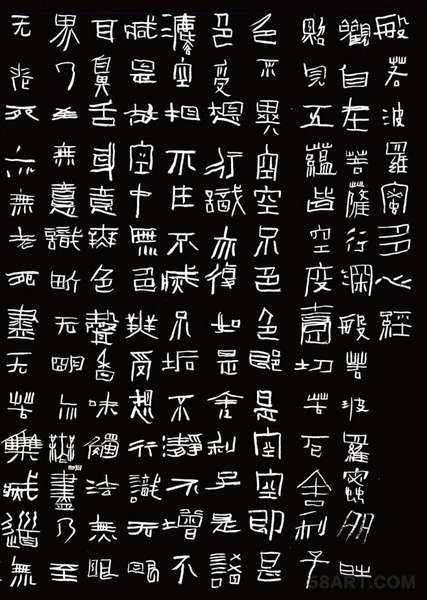 般若波羅蜜多心經
觀自在菩薩行深般若波羅蜜多時
照見五蘊皆空度壹切苦厄舍利子
色不異空空不色色即是空空即是
色受想行識亦復如是舍利子是諸
法空相不生不滅不垢不淨不增不
減是故空中無色無受想行識无眼
耳鼻舌身意無色聲香味觸法無眼
界乃至無意識界无明亦無明盡乃至
无老死亦無老死盡无苦集滅道無
58ART.COM